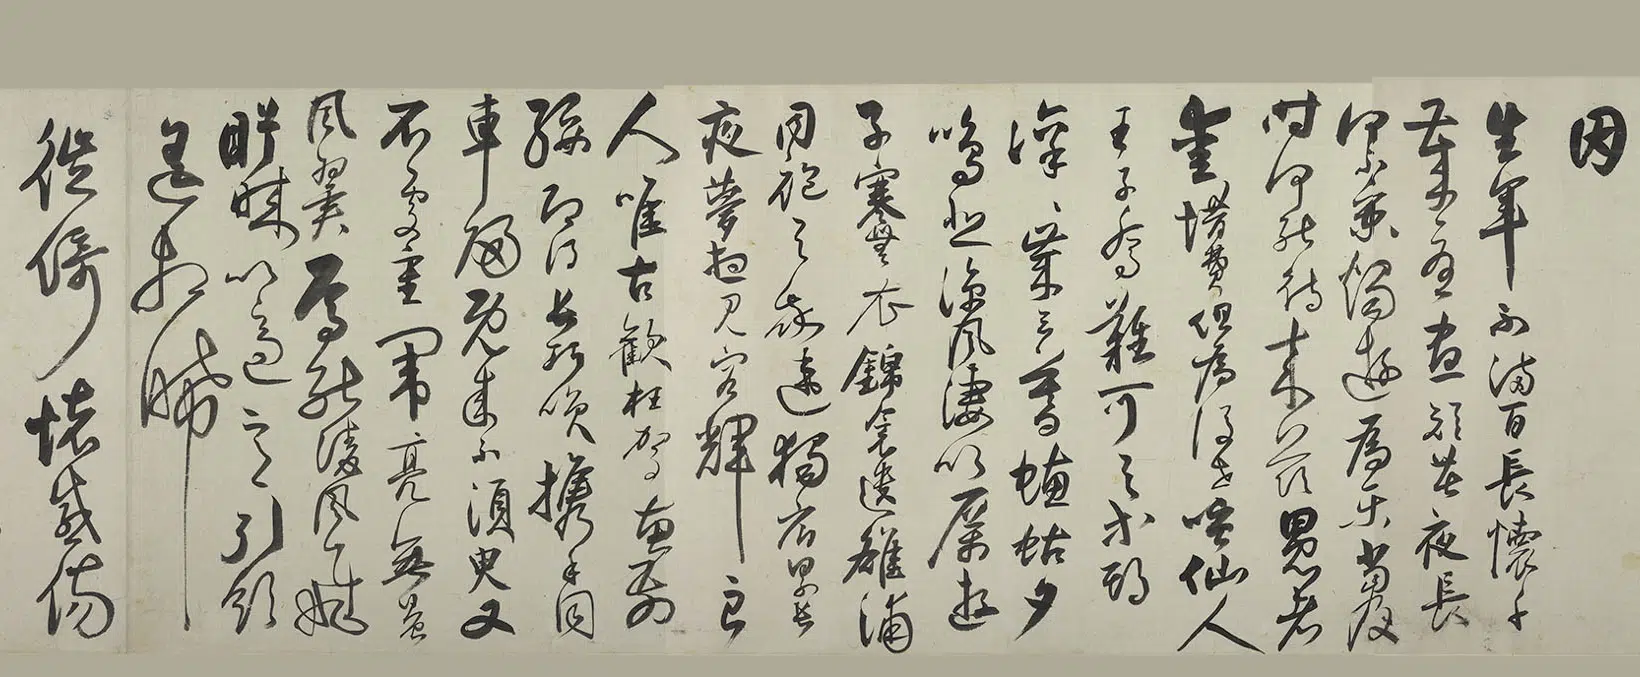 因
生年不滿百長懷千
歲憂晝短苦夜長
何不秉燭遊為樂當及
時何能待來茲愚者
愛惜費但為後世嗤仙人
王子喬難可與等期
凜凜歲云暮螻蛄夕
鳴悲涼風淒以厲遊
子寒無衣錦衾遺雒浦
同袍與我違獨宿累長
夜夢想見容輝良
人唯古歡枉駕惠前
綏願得長巧笑攜手同
車歸既來不須臾又
不處重闈亮無晨
風翼焉能凌風飛
眄睞以適意引領
遙相睎
徙倚懷感傷